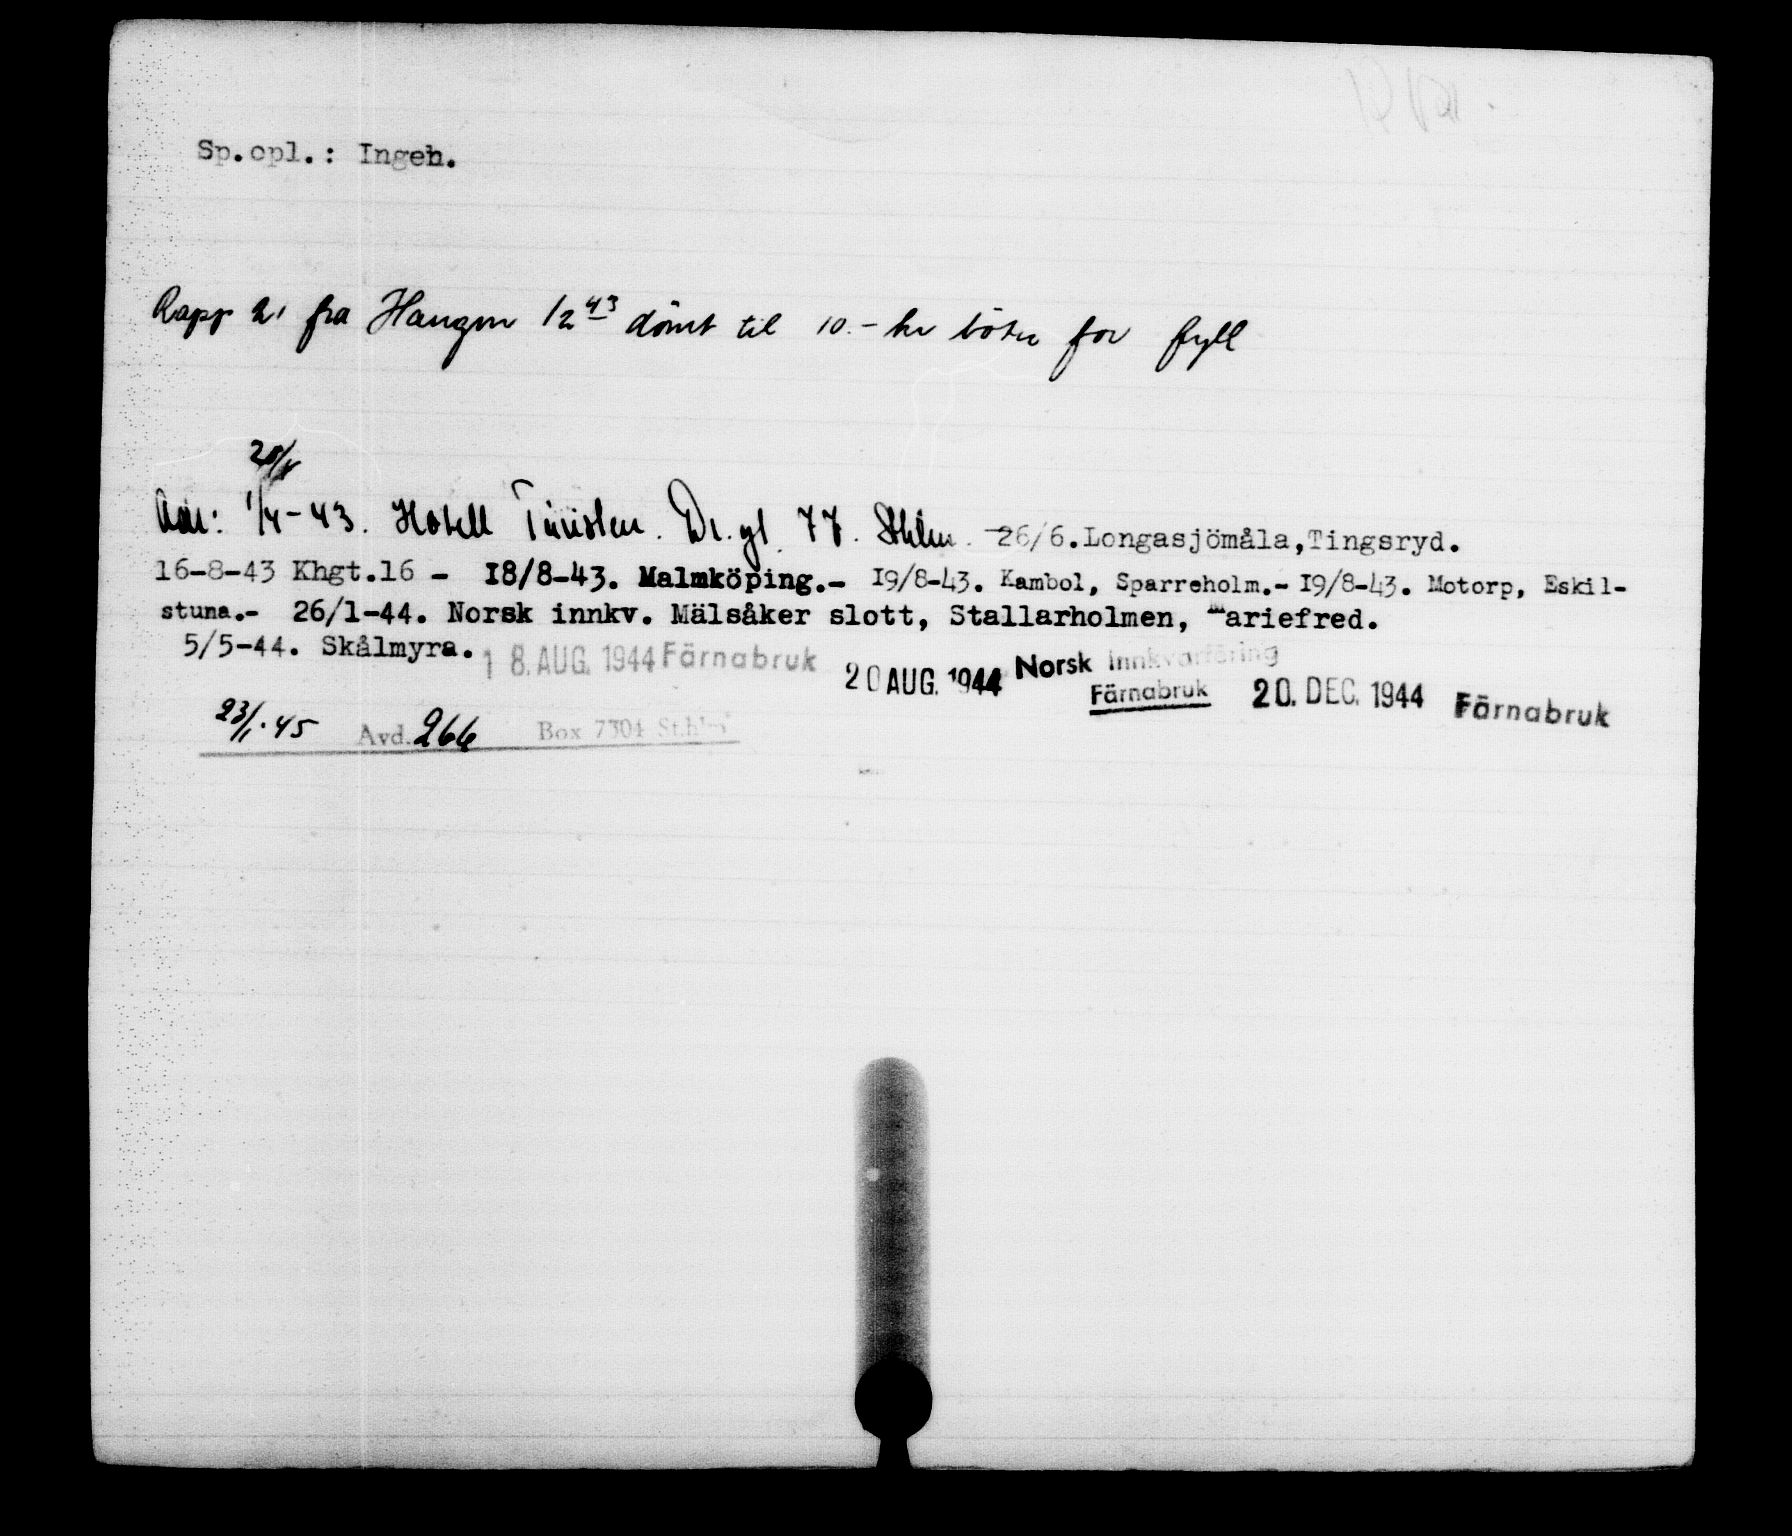 Sp.opl.: Ingen.
Rapp fra Haugen 12 43 dömt til 10.- kr böter for fyll
20/
Adr: 1/4-43. Hotell Turisten. Dr. gt. 77. Sthlm. -26/6. Longasjömåla, Tingsryd.
16-8-43 Khgt.16 - 18/8-43. Malmköping.- 19/8-43. Kambol, Sparreholm.- 19/8-43. Motorp, Eskil-
stuna.- 26/1-44. Norsk innkv. Mälsåker slott, Stallarholmen, Mariefred.
5/5-44. Skålmyra. 18. AUG. 1944 Färnabruk 20 AUG. 1944 Norsk innkvartering
Färnabruk 20. DEC. 1944 Färnabruk
23/1.45 Avd. 266 Box 7304 Sthlm